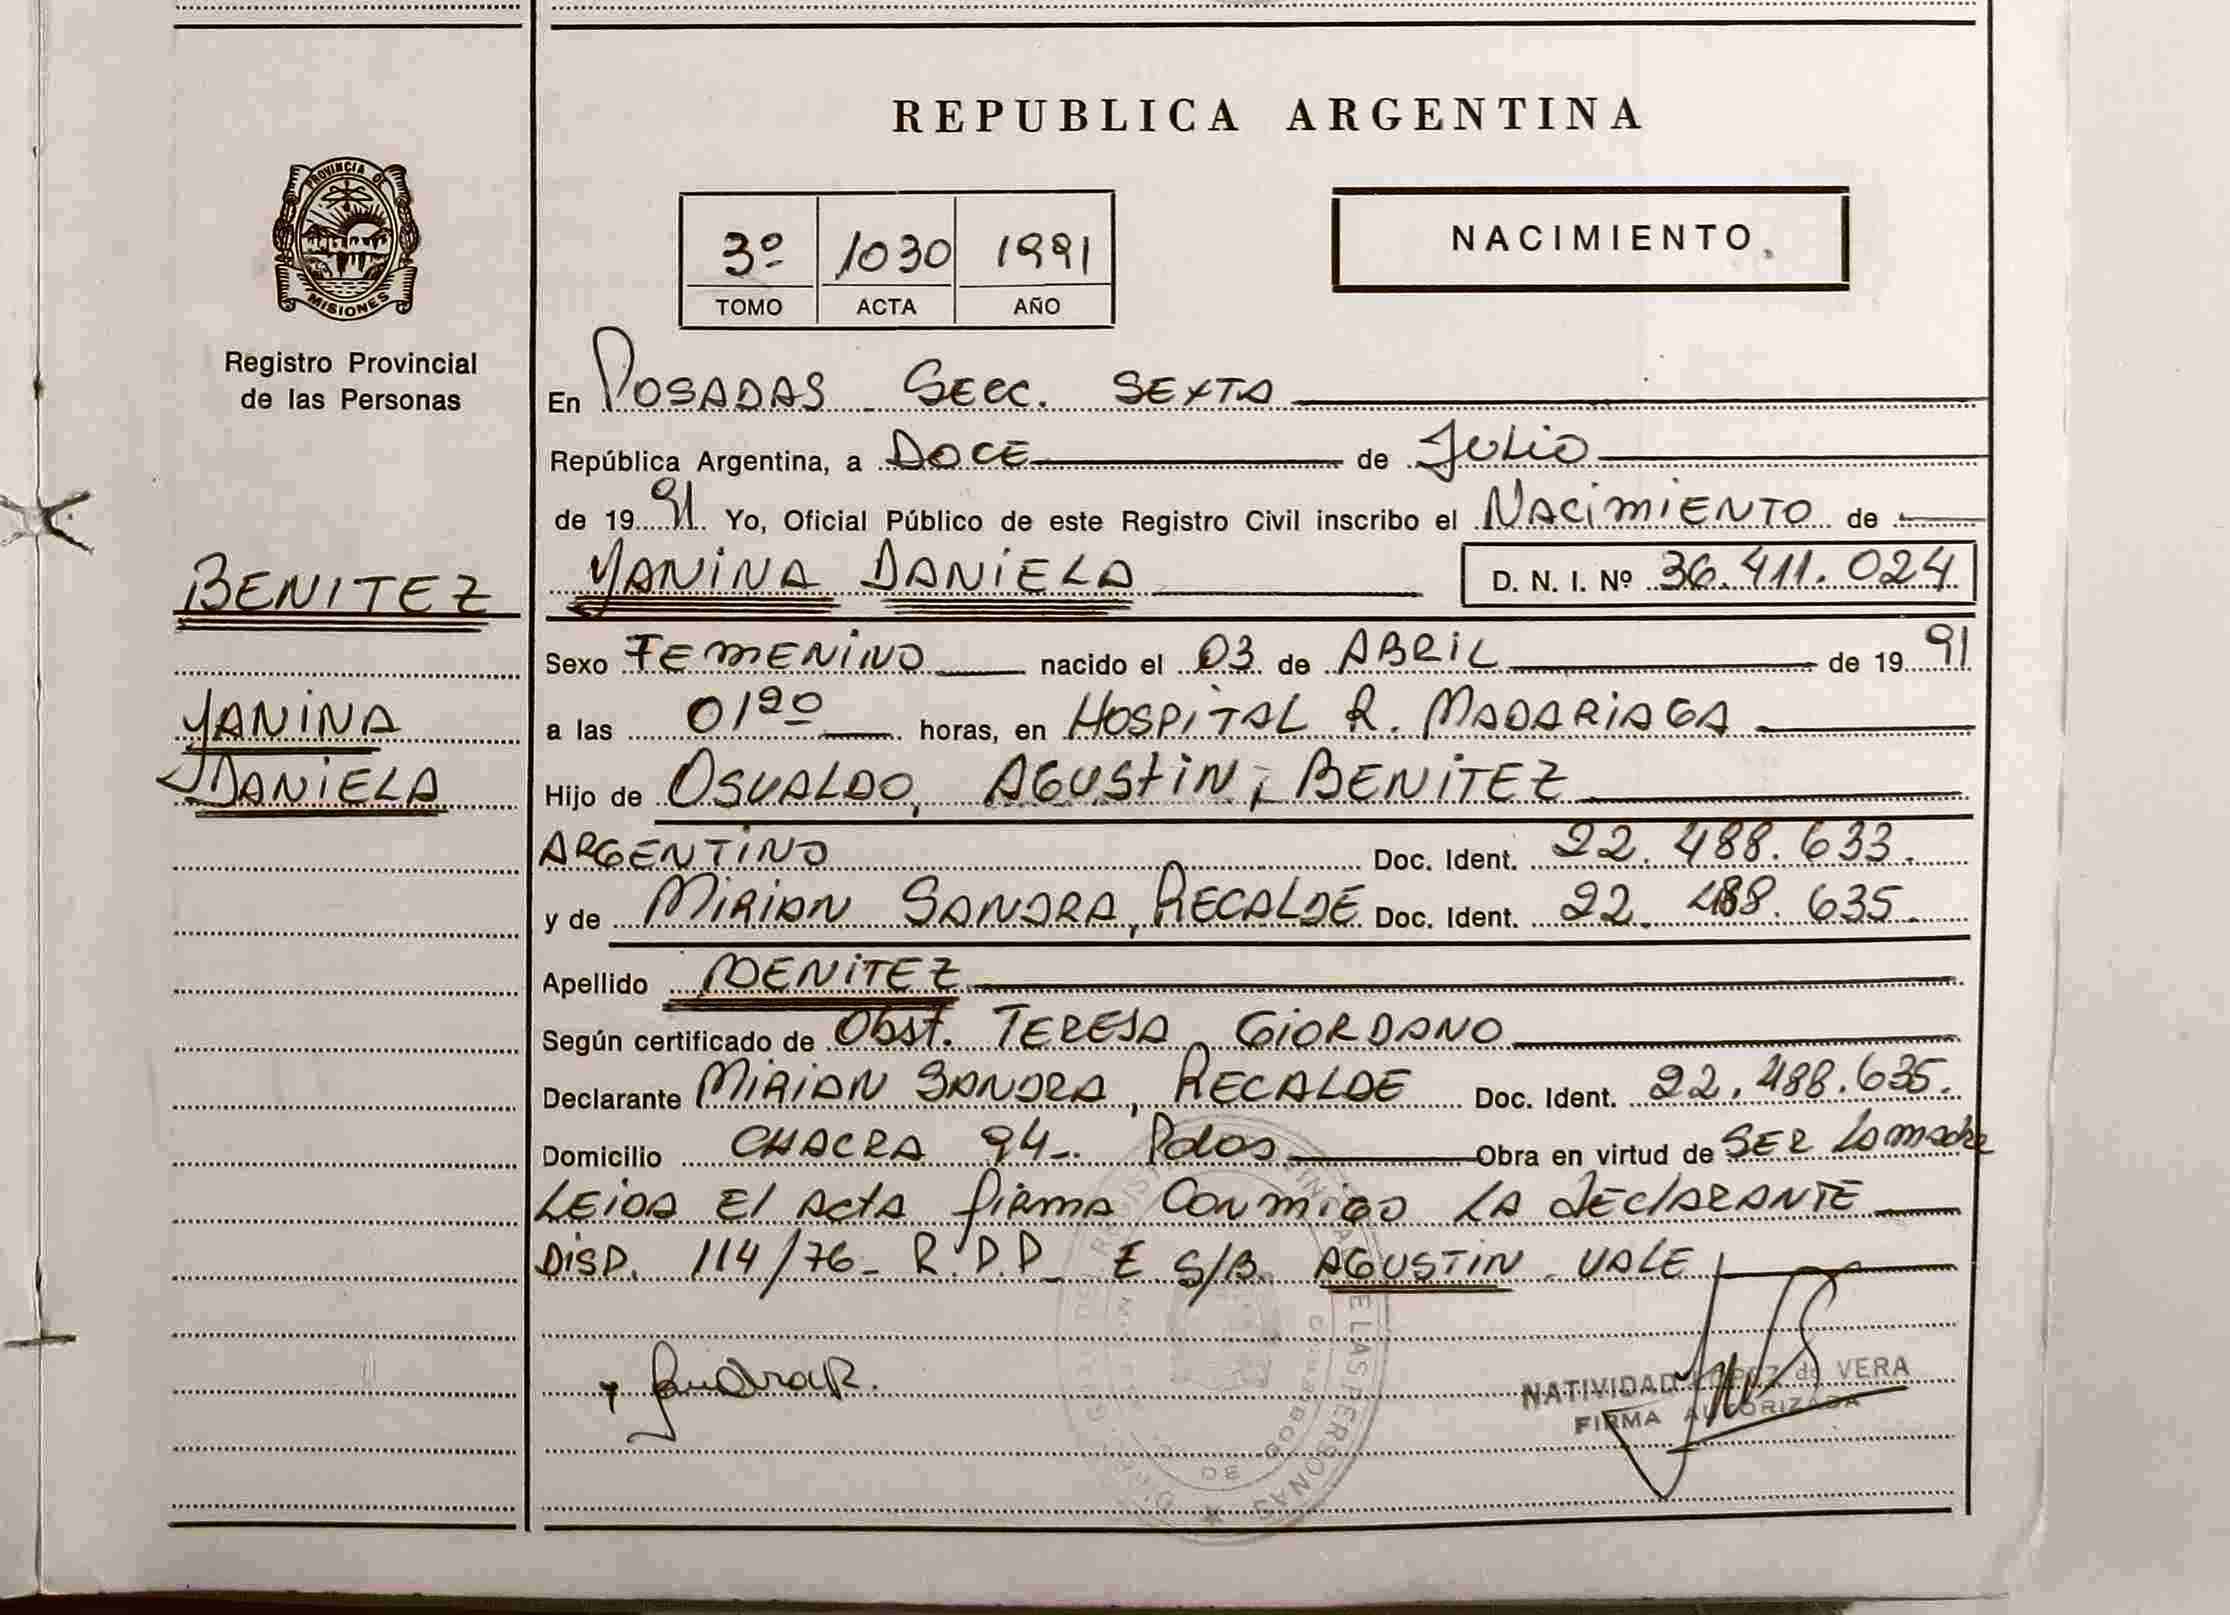 REPUBLICA ARGENTINA
PROVINCIA DE
MISIONES
Registro Provincial
de las Personas
3º 1030 1991
TOMO ACTA AÑO
NACIMIENTO
En POSADAS SECC. SEXTA
República Argentina, a DOCE de Julio
de 1991 Yo, Oficial Público de este Registro Civil inscribo el NACIMIENTO de
BENITEZ
YANINA DANIELA D. N. I. Nº 36.411.024
Sexo FEMENINO nacido el 03 de ABRIL de 1991
YANINA
a las 0120 horas, en HOSPITAL R. MADARIAGA
DANIELA
Hijo de OSVALDO, AGUSTIN, BENITEZ
ARGENTINO Doc. Ident. 22.488.633.
y de MIRIAN SANDRA, RECALDE Doc. Ident. 22.488.635.
Apellido BENITEZ
Según certificado de Obst. TERESA GIORDANO
Declarante MIRIAN SANDRA, RECALDE Doc. Ident. 22.488.635.
Domicilio CHACRA 94-. Pdas Obra en virtud de SER La madre
LEIDA El Acta firma Conmigo LA DEClARANTE
DISP. 114/76- R.P.P- E S/B AGUSTIN VALE
SandraR.
NATIVIDAD LOPEZ de VERA
FIRMA AUTORIZADA
DE LAS PERSONAS